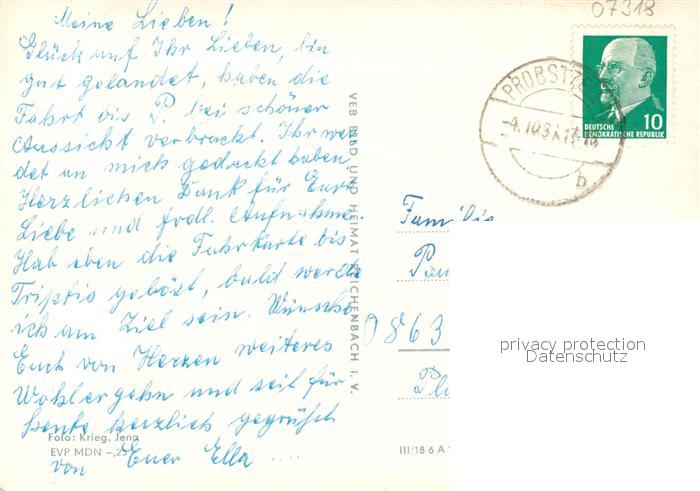 07318
Meine Lieben!
Glück auf Ihr Lieben, bin
gut gelandet, haben die
Fahrt bis P. bei schöner
Aussicht verbracht. Ihr wer
det an mich gedacht haben.
Herzlichen Dank für Eure
Liebe und frdl. Aufnahme.
Hab eben die Fahrkarte bis
Triptis gelöst, bald werde
ich am Ziel sein. Wünsche
Euch von Herzen weiteres
Wohlergehn und seit für
heute herzlich gegrüßt
von Euer Ella ....
Foto: Krieg, Jena
EVP MDN -,25
VEB BILD UND HEIMAT REICHENBACH i. V.
III/18 6 A
PROBSTZ
b
10
DEUTSCHE
DEMOKRATISCHE REPUBLIK
Familie
0863
privacy protection
Datenschutz